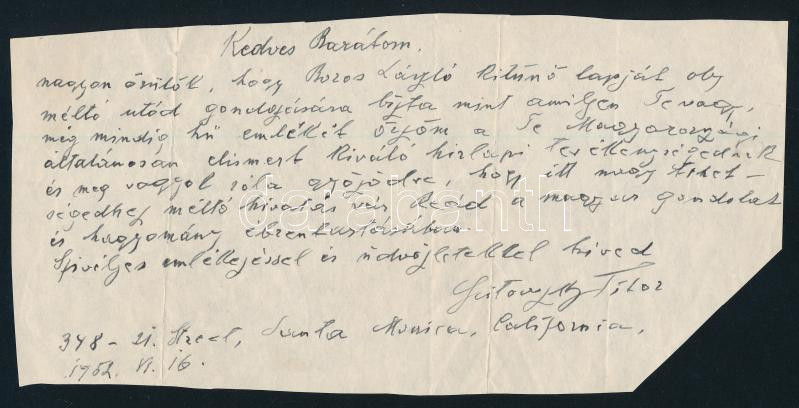 Kedves Barátom,
nagyon örülök, hogy Boros László kitünö lapját oly
méltó utód gondozására bízta mint amilyen Te vagy,
még mindig hü emlékét örzöm a Te Magyarországi
általánosan elismert kiváló hirlapi tevékenységednek
és meg vagyok róla győzödve, hogy itt nagy tehet-
ségedhez méltó hivatás vár Reád a magyar gondolat
és hagyomány ébrentartásában.
Szivélyes emlékezéssel és üdvözletekkel hived
Scitovszky Tibor
348 - 21. Street, Santa Monica, California,
1952. VI. 16.
darabanth